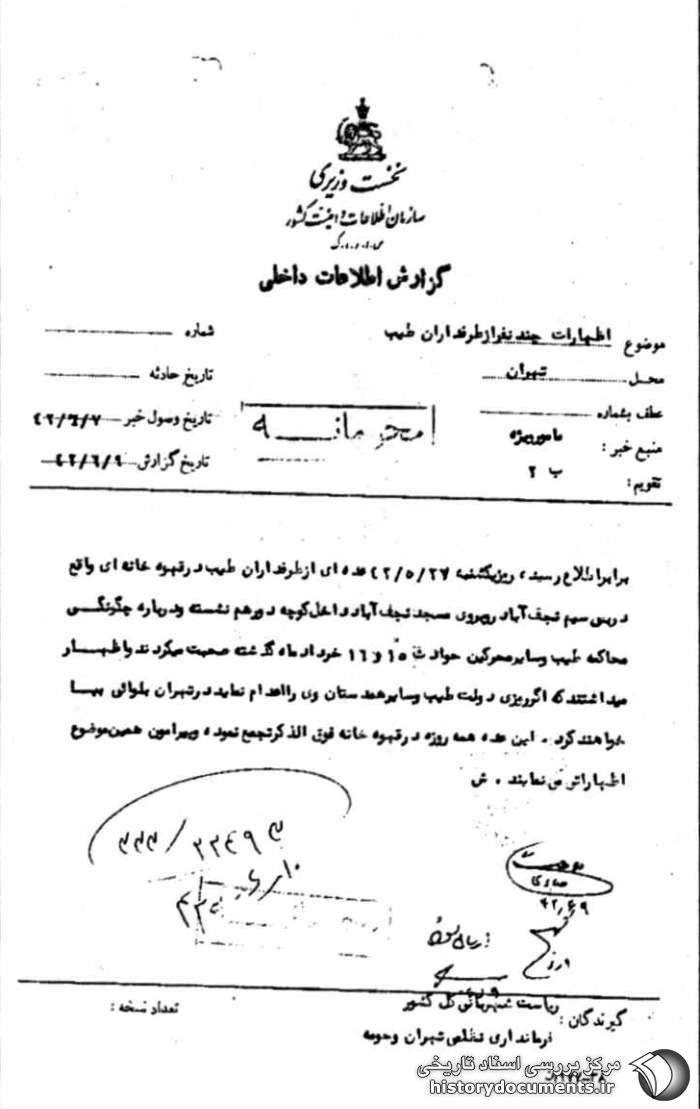 نخست وزیری
سازمان اطلاعات و امنیت کشور
س.ا.و.ا.ک
گزارش اطلاعات داخلی
موضوع اظهارات چند نفر از طرفداران طیب
محل تهران
عطف بشماره
منبع خبر : مامور ویژه
تقویم : ب ۲
شماره
تاریخ حادثه
تاریخ وصول خبر ۴۲/۶/۷
تاریخ گزارش ۴۲/۶/۹
محرمانه
برابر اطلاع رسیده ، روز یکشنبه ۴۲/۵/۲۷ عده ای از طرفداران طیب در قهوه خانه ای واقع
در بی سیم نجف آباد روبروی مسجد نجف آباد داخل کوچه دور هم نشسته و درباره چگونگی
محاکمه طیب و سایر محرکین حوادث ۱۵ و ۱۶ خرداد ماه گذشته صحبت میکردند و اظهار
میداشتند که اگر روزی دولت طیب و سایر همدستان وی را اعدام نماید در تهران بلوائی بپا
خواهند کرد . این عده همه روزه در قهوه خانه فوق الذکر تجمع نموده و پیرامون همین موضوع
اظهاراتی می نمایند . ش
۳۳۳/۲۲۴۹۳
۴۲/۶/۹
گیرندگان : ریاست شهربانی کل کشور
فرمانداری نظامی تهران و حومه
تعداد نسخه :
مرکز بررسی اسناد تاریخی
historydocuments.ir